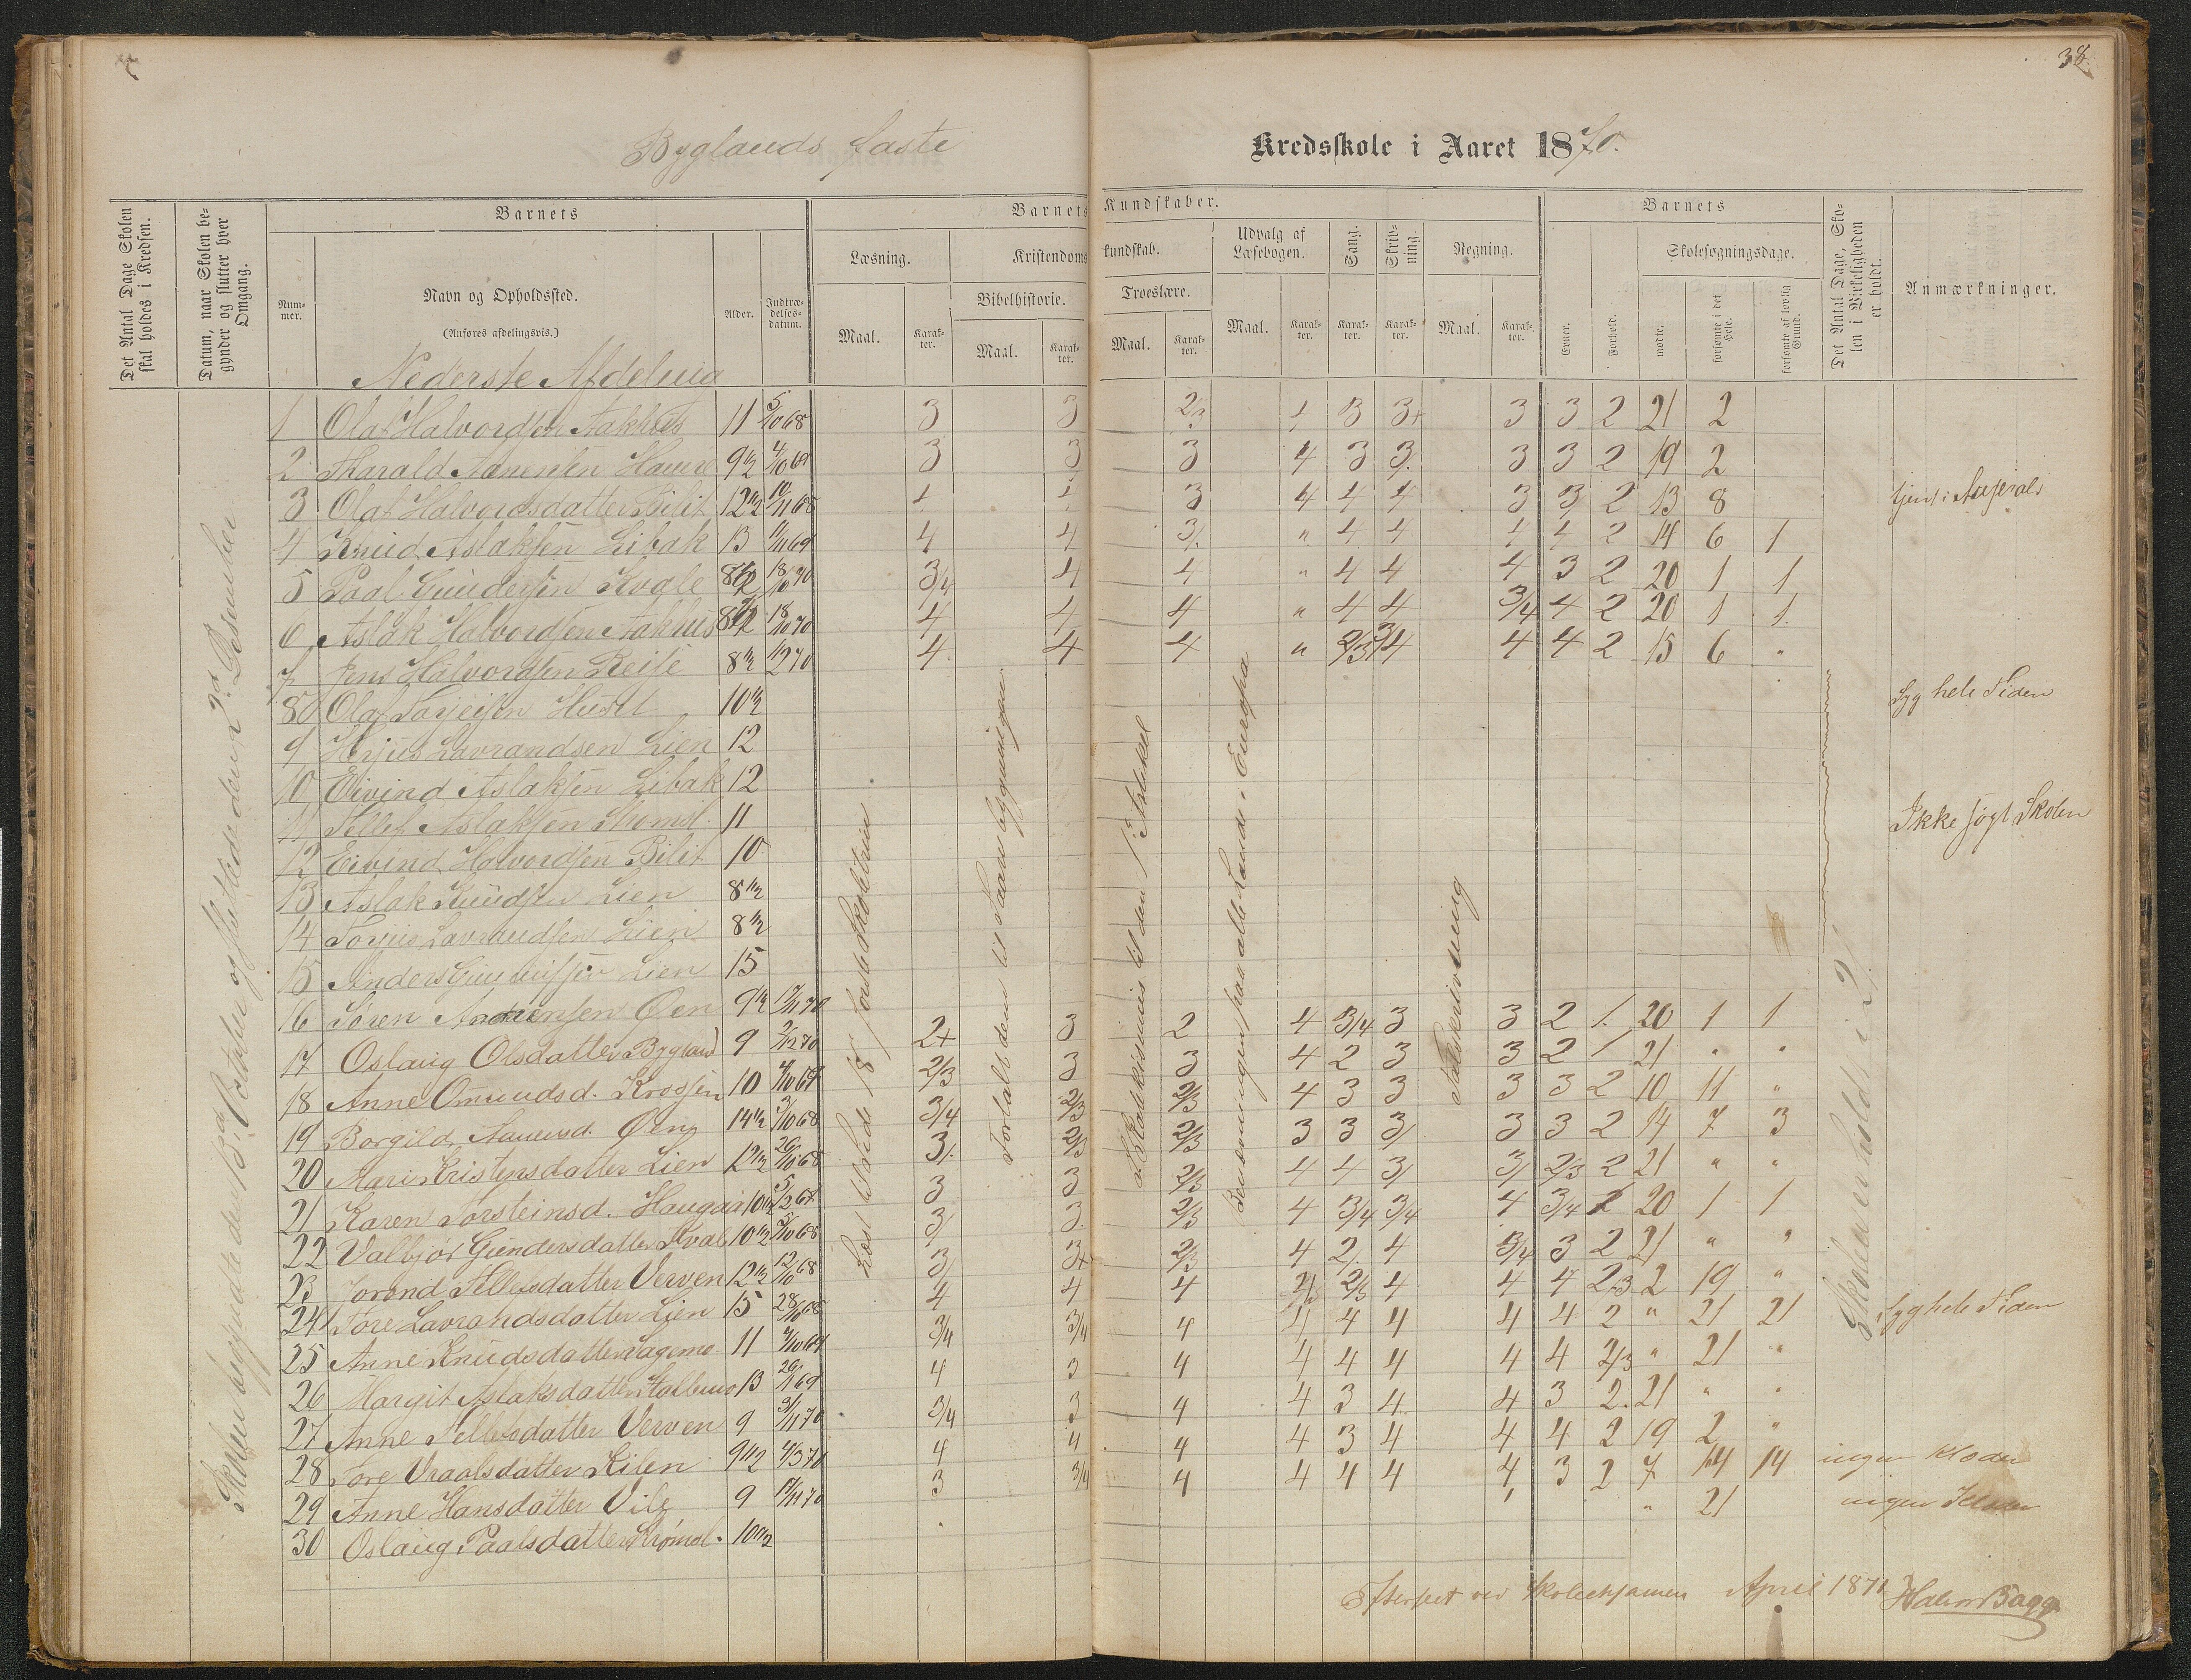 38
Byglands faste
Kredsskole i Aaret 1870.
Det Antal Dage Skolen skal holdes i Kredsen.
Datum, naar Skolen begynder og slutter hver Omgang.
Barnets
Nummer.
Navn og Opholdssted.
(Anføres afdelingsvis.)
Alder.
Indtrædelsesdatum.
Barnets Kundskaber.
Læsning.
Kristendomskundskab.
Bibelhistorie.
Troeslære.
Udvalg af Læsebogen.
Sang.
Skrivning.
Regning.
Maal.
Karakter.
Maal.
Karakter.
Maal.
Karakter.
Maal.
Karakter.
Karakter.
Karakter.
Maal.
Karakter.
Barnets
Evner.
Forhold.
Skolesøgningsdage.
mødte.
forsømte i det Hele.
forsømte af lovlig Grund.
Det Antal Dage, Skolen i Virkeligheden er holdt.
Anmærkninger.
Nederste Afdeling
1 Olaf Halvordsen Aakhus 11 5/10 68 3 3 2/3 4 3 3+ 3 3 2 21 2
2 Tharald Aanensen Haure 9 1/2 3 3 3 4 3 3. 3 3 2 19 2
3 Olaf Halvordsdatter Bilit 12 1/2 10/11 68 4 4 3 4 4 4 3 3 2 13 8
4 Knud Aslaksen Libak 13 4 4 3/. " 4 4 4 4 2 14 6 1
5 Paal Gundersen Kvale 8 1/2 18/10 70 3/4 4 4 " 4 4 4 3 2 20 1 1
6 Aslak Halvordsen Aakhus 8 1/2 18/10 70 4 4 4 " 4 4 3/4 4 2 20 1 1.
7 Jens Halvordsen Reise 8 1/2 4 4 4 " 2/3 3/4 4 4 2 15 6 "
8 Olaf Torjeisen Huset 10 1/2 Syg hele Tiden
9 Herjus Lavrandsen Lien 12
10 Eivind Aslaksen Libak 12
11 Tellef Aslaksen 11 Ikke søgt Skolen
12 Eivind Halvordsen Bilit 10
13 Aslak Knudsen Lien 8 1/2
14 Torjus Lavrandsen Lien 8 1/2
15 Anders Lien 15
16 Søren Aanensen Øen 9 1/2 17/11 70 2+ 3 2 4 3/4 3 3 2 1. 20 1 1
17 Oslaug Olsdatter Bygland 9 2/12 70 2/3 3 3 4 2 3 3 2 1 21 " "
18 Anne Omundsd. Krossen 10 3/4 2/3 2/3 4 3 3 3 3 2 10 11 "
19 Borgild Aanensd. Øen 14 1/2 3/10 68 3/. 2/3 2/3 3 3 3/ 3 3 2 14 7 3
20 Mari Kristensdatter Lien 12 1/2 26/10 68 3 3 2/3 4 4 3/ 3/ 2/3 2 21 " "
21 Karen Torsteinsd. Haugaa 10 1/2 3/ 3. 2/3 4 3/4 3/4 4 3/4 2 20 1 1
22 Valbjør Gundersdatter Kvale 10 1/2 5/10 68 3/ 3+ 2/3 4 2/. 4 3/4 3 2 21 " "
23 Jorond Tellefsdatter Verven 12 1/2 12/10 68 4 4 4 2/3 2/3 4 4 4 2/3 2 19 "
24 Tore Lavrandsdatter Lien 15 28/10 68 3/4 3/4 4 4 4 4 4 4 2 " 21 21 Syg hele Tiden
25 Anne Knudsdatter Lagemo 11 4 3 4 4 4 4 4 4 2/3 " 21 "
26 Margit Aslaksdatter 13 3/4 3 4 4 3 4 4 3 2. 21 " "
27 Anne Tellefsdatter Verven 9 3/11 70 4 4 4 4 3 4 4 4 2 19 2 "
28 Tore Vraalsdatter Kilen 9 1/2 4/3 70 3 3/4 4 4 4 4 4 3 2 7 14 14 ingen Klæder
29 Anne Hansdatter 9 17/11 70 " 21 ingen Klæder
30 Oslaug Paalsdatter 10 1/2
Skolen begyndte den og sluttede den 2d Desember
Læst til Side 18 første Skoletrin
Fortalt dem til Saara begyndelsen
Katekismus til den 1ste Artikel
Benævningen paa alle Lande i Europa
Talskrivning
Skolen er holdt i 21
Eftersect ved Skoleeksamen April 1871 Halvor Bagg